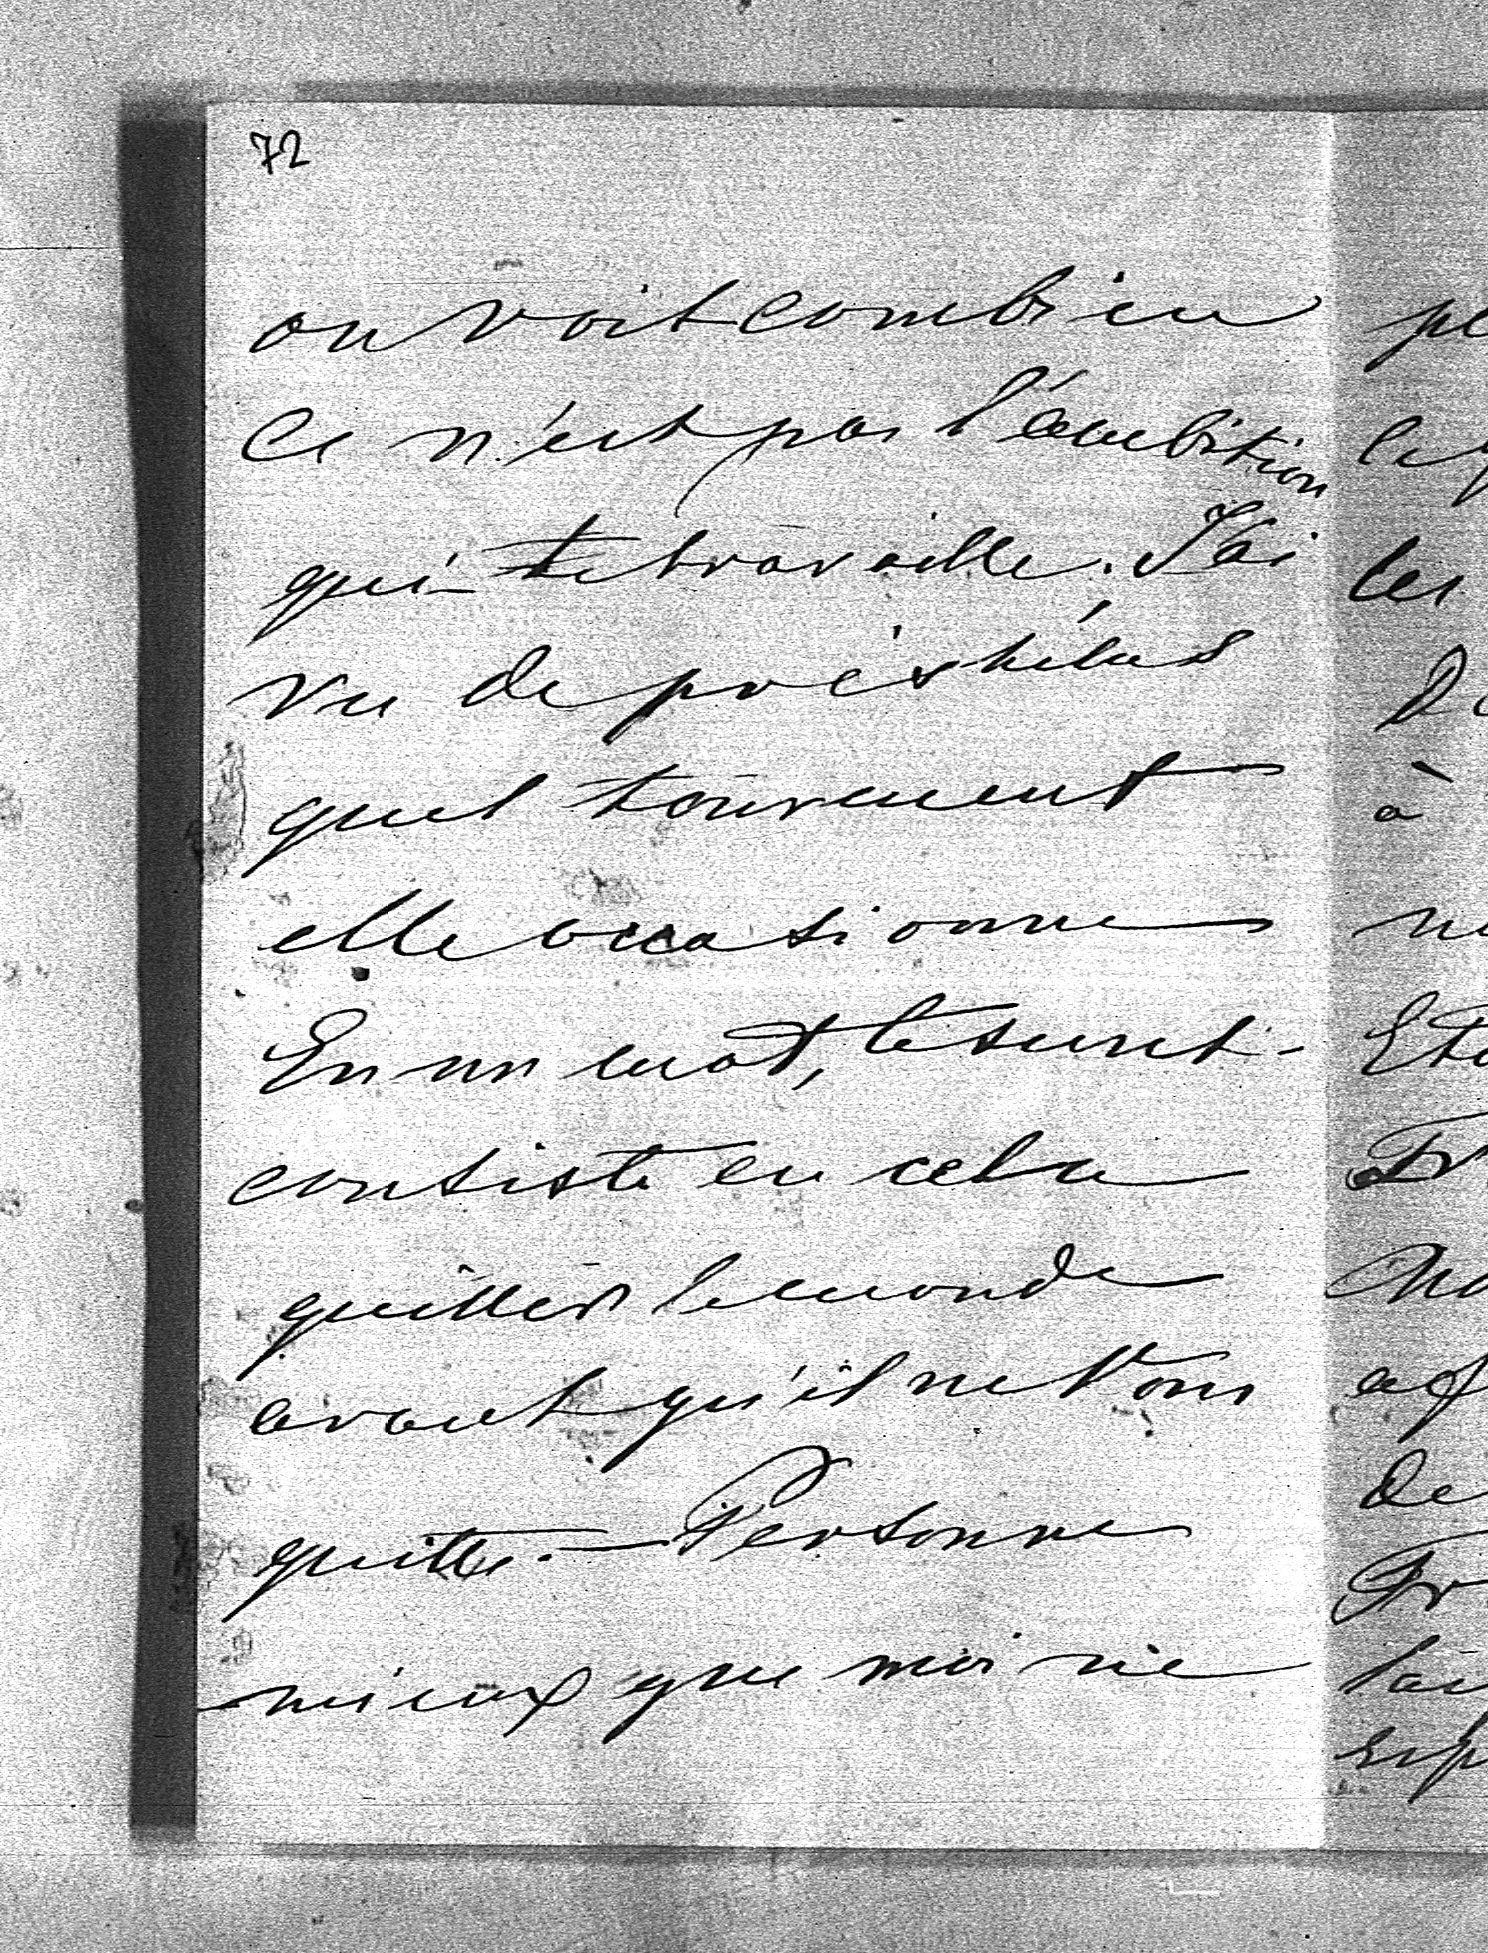 72
on voit combien
ce n'est pas l'ambition
qui te travaille. J'ai
vu de près hélas
quel tourment
elle occasionne
En un mot, le secret
consiste en cela
quitter le monde
avant qu'il ne vous
quitte. — Personne
mieux que moi ne